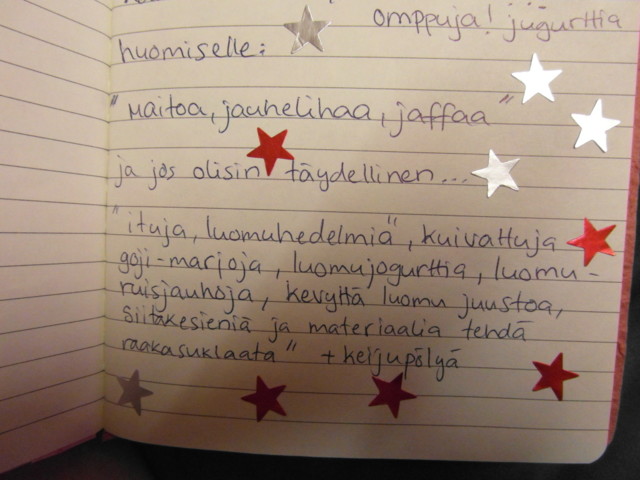 omppuja! jugurttia
huomiselle:
"Maitoa, jauhelihaa, jaffaa"
ja jos olisin täydellinen...
"ituja, luomuhedelmiä", kuivattuja
goji-marjoja, luomujogurttia, luomu-
ruisjauhoja, kevyttä luomu juustoa,
Siitakesieniä ja materiaalia tehdä
raakasuklaata" + keijupölyä